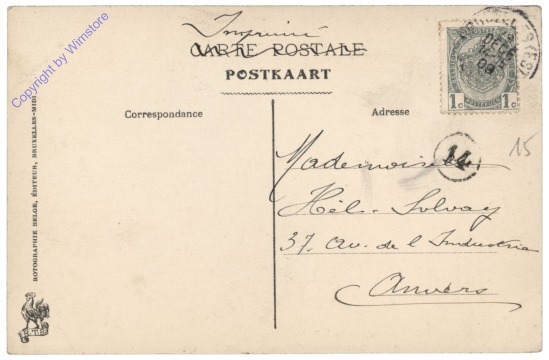 Imprimé
CARTE POSTALE
POSTKAART
Correspondance
Adresse
1c 1c
14
15
Mademoiselle
Hél. Solvay
37. Av. de l'Industrie
Anvers
ROTOGRAPHIE BELGE, ÉDITEUR, BRUXELLES-MIDI
Copyright by Wimstore